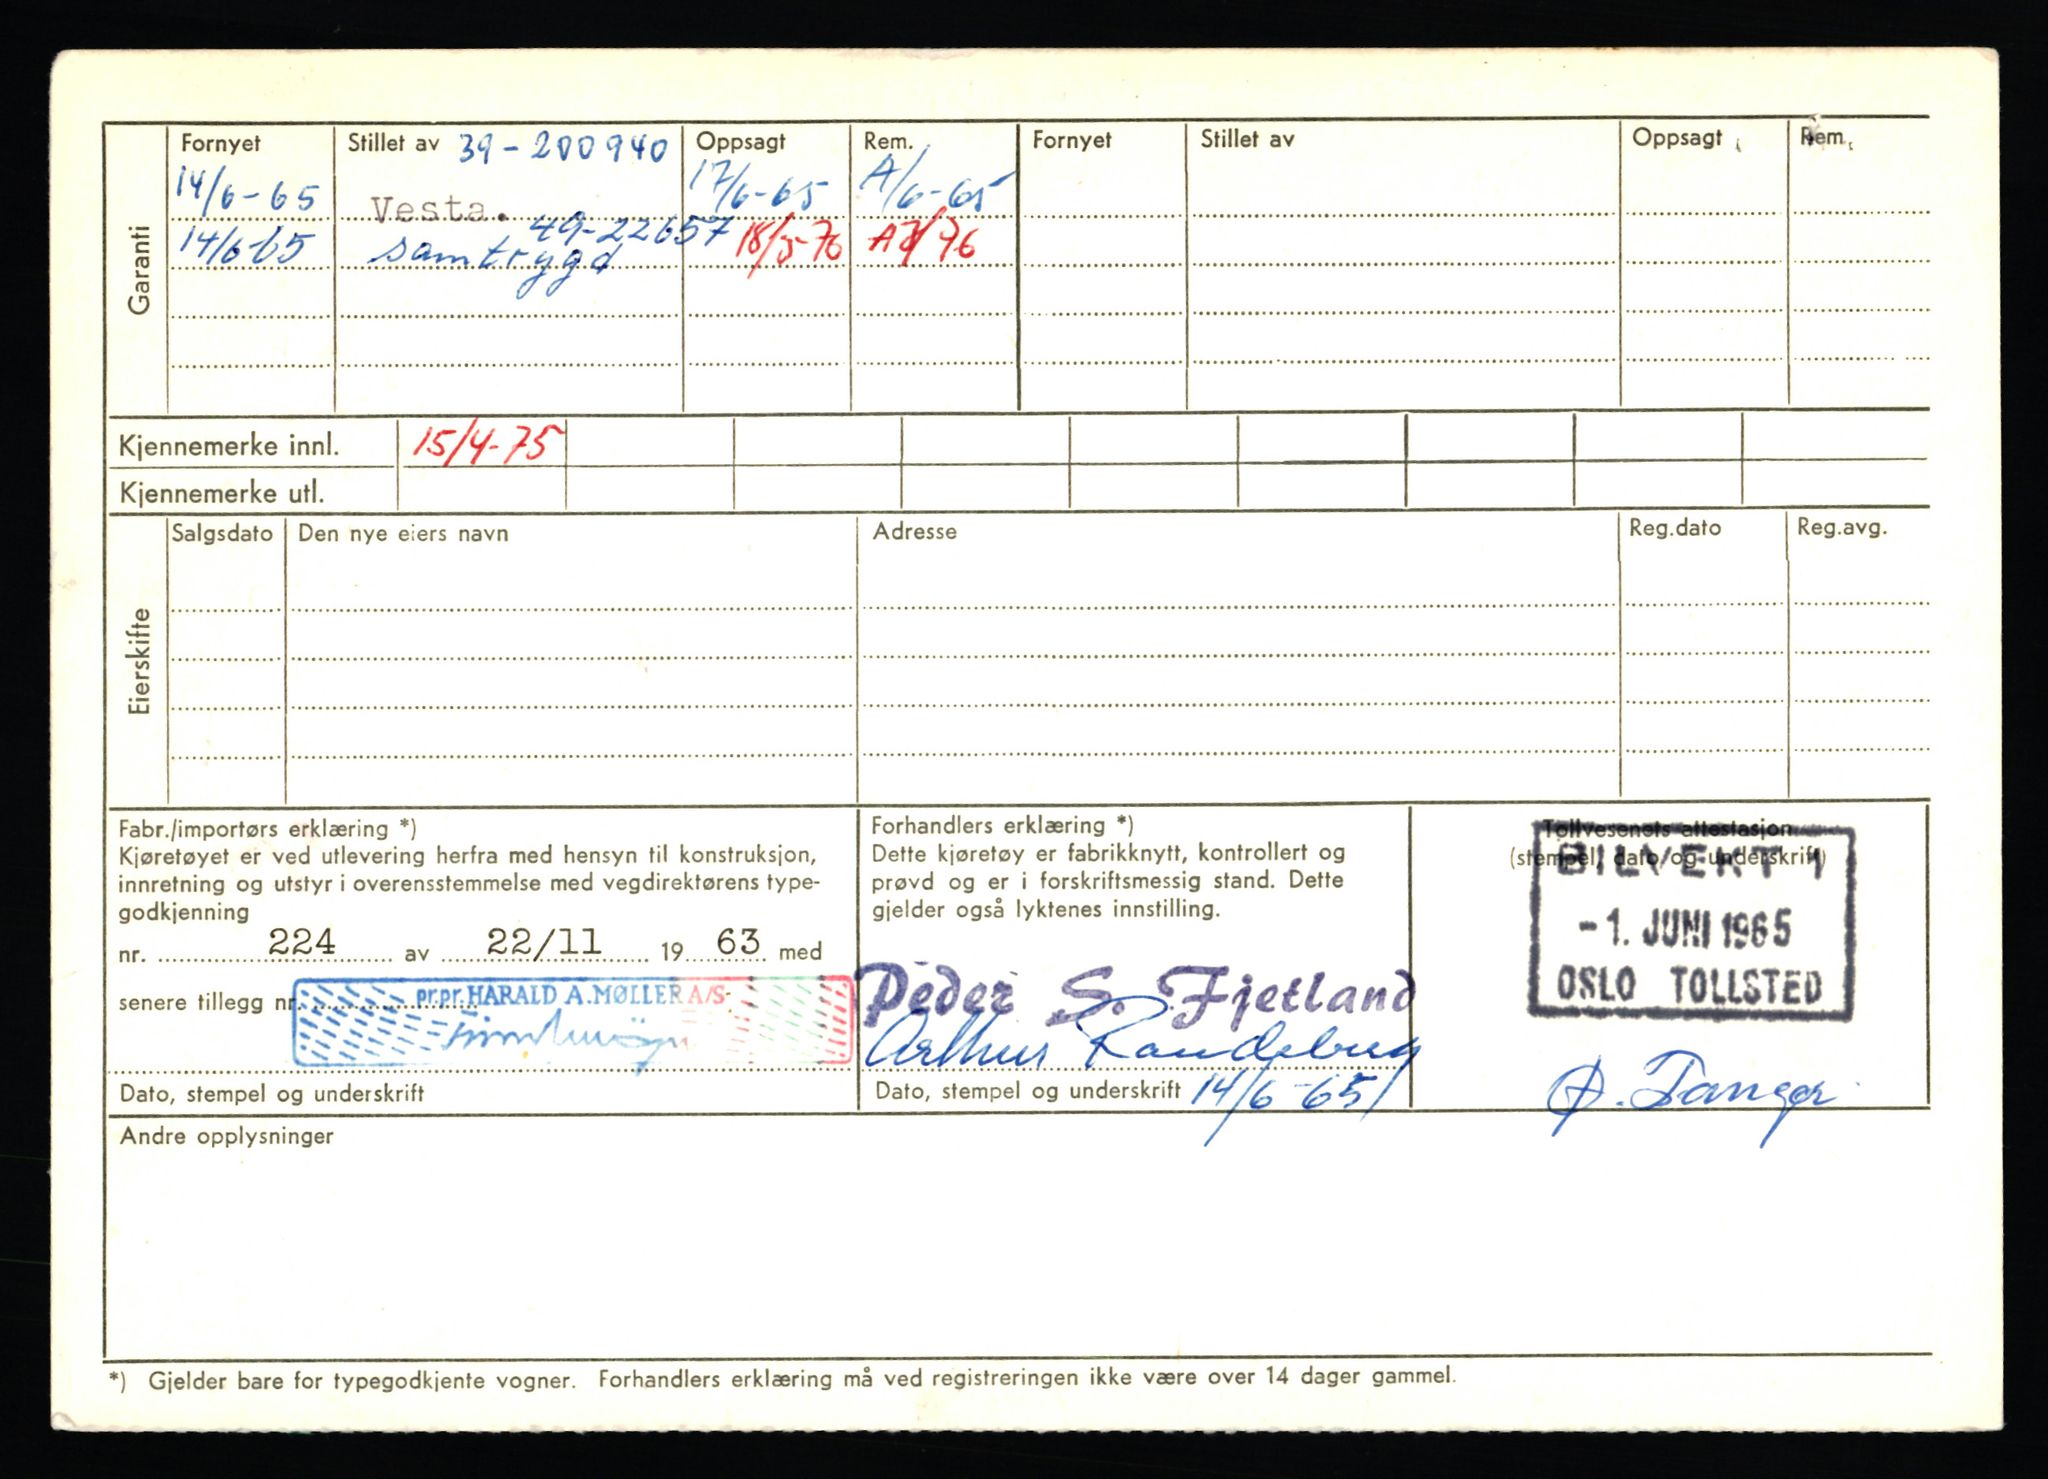 Garanti
Fornyet Stillet av 39-200940 Oppsagt Rem. Fornyet Stillet av Oppsagt Rem.
14/6-65 Vesta. 17/6-65 A/6-65
14/6-65 49-22657 samtrygd 18/5-76
Kjennemerke innl. 15/4-75
Kjennemerke utl.
Eierskifte
Salgsdato Den nye eiers navn Adresse Reg.dato Reg.avg.
Fabr./importørs erklæring *)
Kjøretøyet er ved utlevering herfra med hensyn til konstruksjon,
innretning og utstyr i overensstemmelse med vegdirektørens type-
godkjenning
nr. 224 av 22/11 19 63 med
senere tillegg nr.
pr.pr. HARALD A. MØLLER A/S
Dato, stempel og underskrift
Forhandlers erklæring *)
Dette kjøretøy er fabrikknytt, kontrollert og
prøvd og er i forskriftsmessig stand. Dette
gjelder også lyktenes innstilling.
Peder S. Fjetland
Arthur Randeberg
Dato, stempel og underskrift 14/6-65
Tollvesenets attestasjon
(stempel, dato og underskrift)
BILVEKT 1
-1. JUNI 1965
OSLO TOLLSTED
Ø. Tanger
Andre opplysninger
*) Gjelder bare for typegodkjente vogner. Forhandlers erklæring må ved registreringen ikke være over 14 dager gammel.